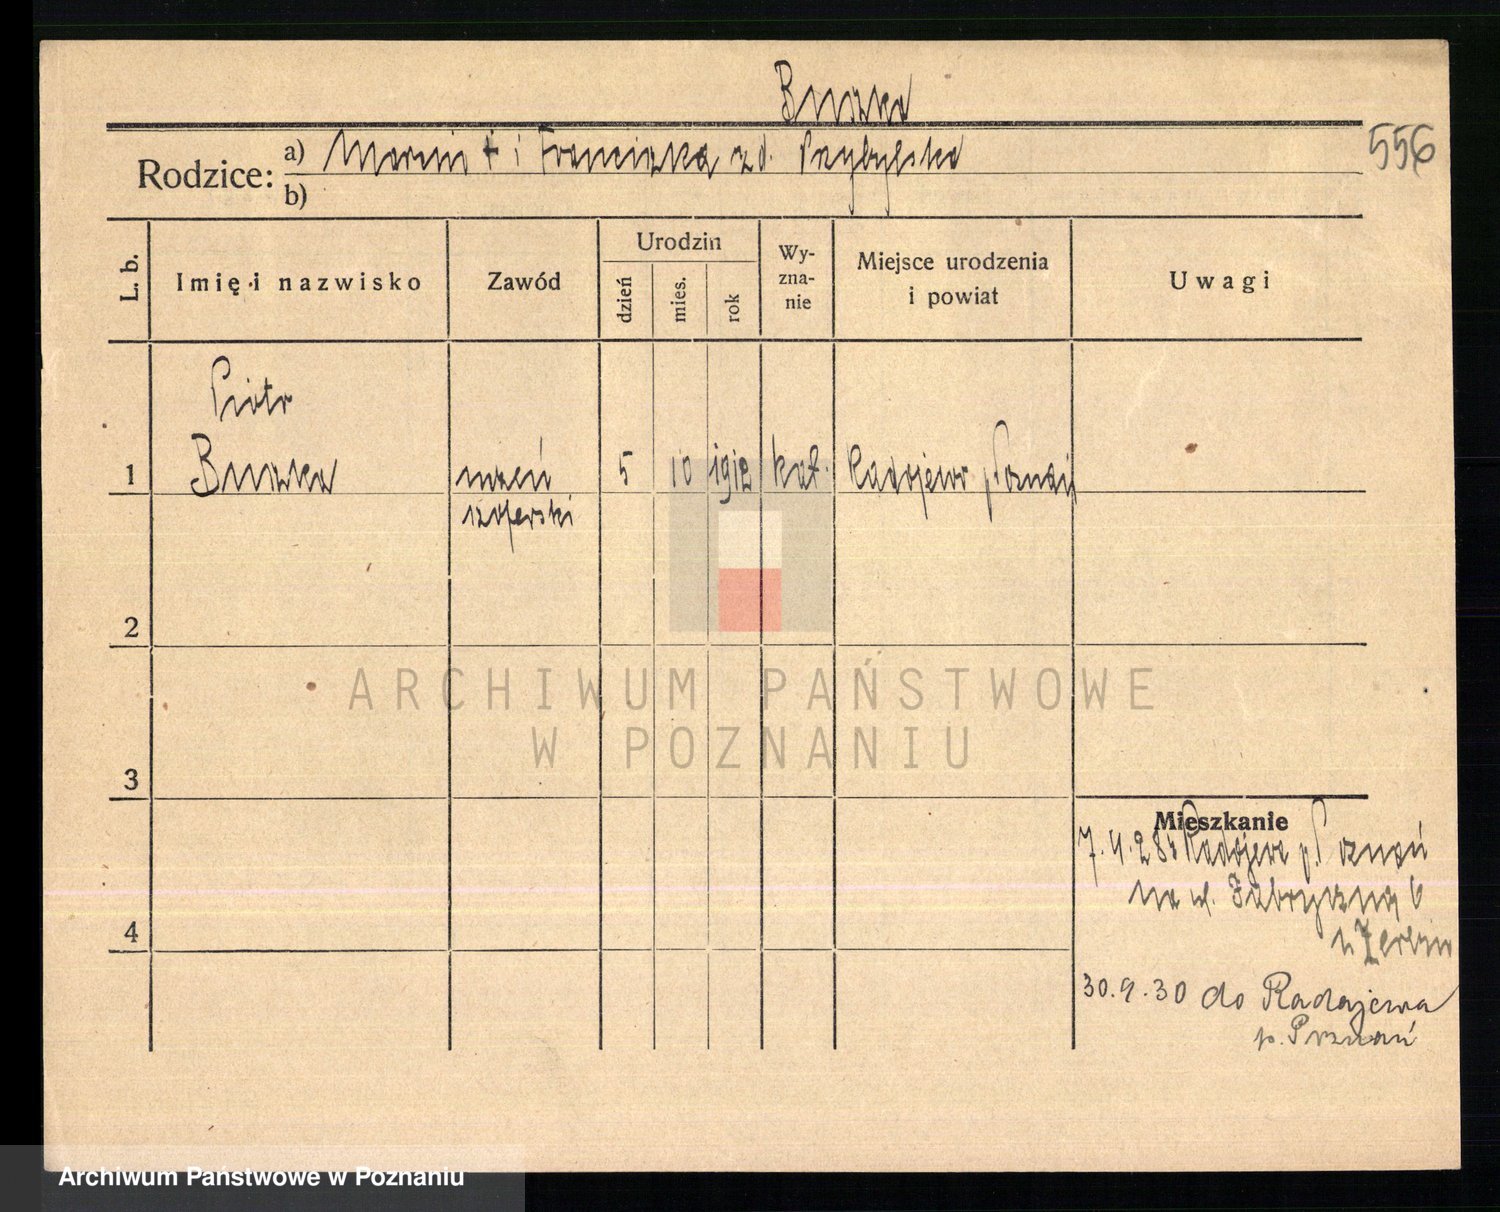 Buszka
556
Rodzice: a) Marcin † i Franciszka zd. Przybylska
b)
L. b.
Imię i nazwisko
Zawód
Urodzin
dzień
mies.
rok
Wy-
zna-
nie
Miejsce urodzenia
i powiat
Uwagi
Piotr
1 Buszka uczeń 5 10 1912 kat. Radojewo p. Poznań
szoferski
2
3
4
Mieszkanie
7.4.28 z Radojewa p. Poznań
na ul. Fabryczną 6
u
30.9.30 do Radojewa
p. Poznań
ARCHIWUM PAŃSTWOWE
W POZNANIU
Archiwum Państwowe w Poznaniu